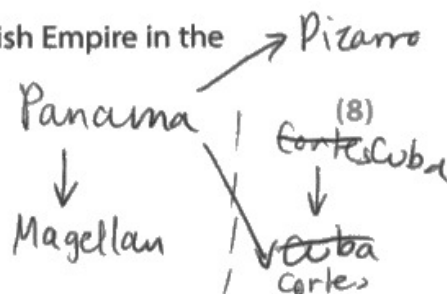 ish Empire in the
Pizarro
(8)
Panama
Cortes Cuba
Magellan
Cuba
Cortes